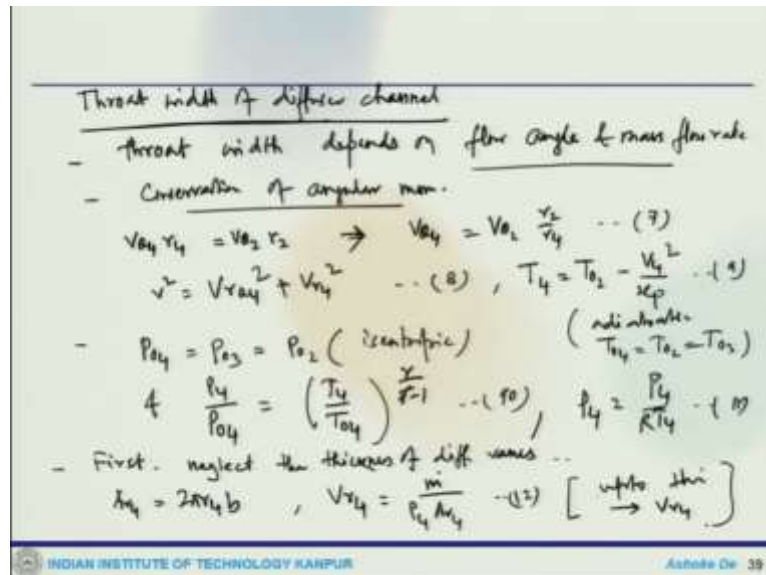 Throat width of diffuser channel
- throat width depends on flow angle & mass flow rate
- Conservation of angular mom.
Vθ4 r4 = Vθ2 r2 → Vθ4 = Vθ2 r2/r4 -- (7)
v² = Vrθ4² + Vr4² -- (8), T4 = T02 - V4²/2cp -- (9)
- P04 = P03 = P02 (isentropic) (adiabatic T04 = T02 = T03)
& P4/P04 = (T4/T04)^(γ/γ-1) --(10), ρ4 = P4/RT4 - (11)
- First. neglect the thickness of diff vanes ..
Ar4 = 2πr4b , Vr4 = ṁ/ρ4 Ar4 -(12) [upto this → Vr4]
INDIAN INSTITUTE OF TECHNOLOGY KANPUR Ashoke De 39